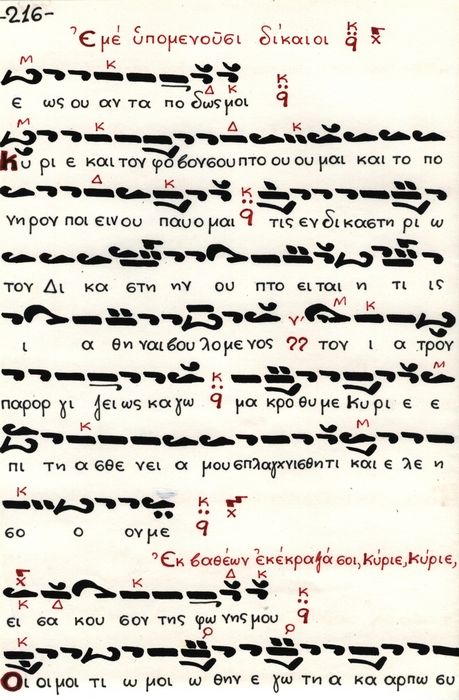 -216-
Ἐμέ ὑπομενοῦσι δίκαιοι
ε ως ου αν τα πο δως μοι
Κύ ρι ε και τον φο βον σου πτο ου ου μαι και το πο
νη ρον ποι ειν ου παυ ο μαι τις εν δι κα στη ρι ω
τον Δι κα στη ην ου πτο ει ται η τι ις
ι α θη ναι βου λο με νος τον ι α τρον
παρ ορ γι ζει ως κα γω μα κρο θυ με Κυ ρι ε ε
πι τη α σθε νει α μου σπλαγχνισθητι και ε λε η
σο ο ον με
Ἐκ βαθέων ἐκέκραξά σοι, Κύριε, Κύριε,
ει σα κου σον της φω νης μου
Οι οι μοι τι ω μοι ω θην ε γω τη α κα αρ πω συ